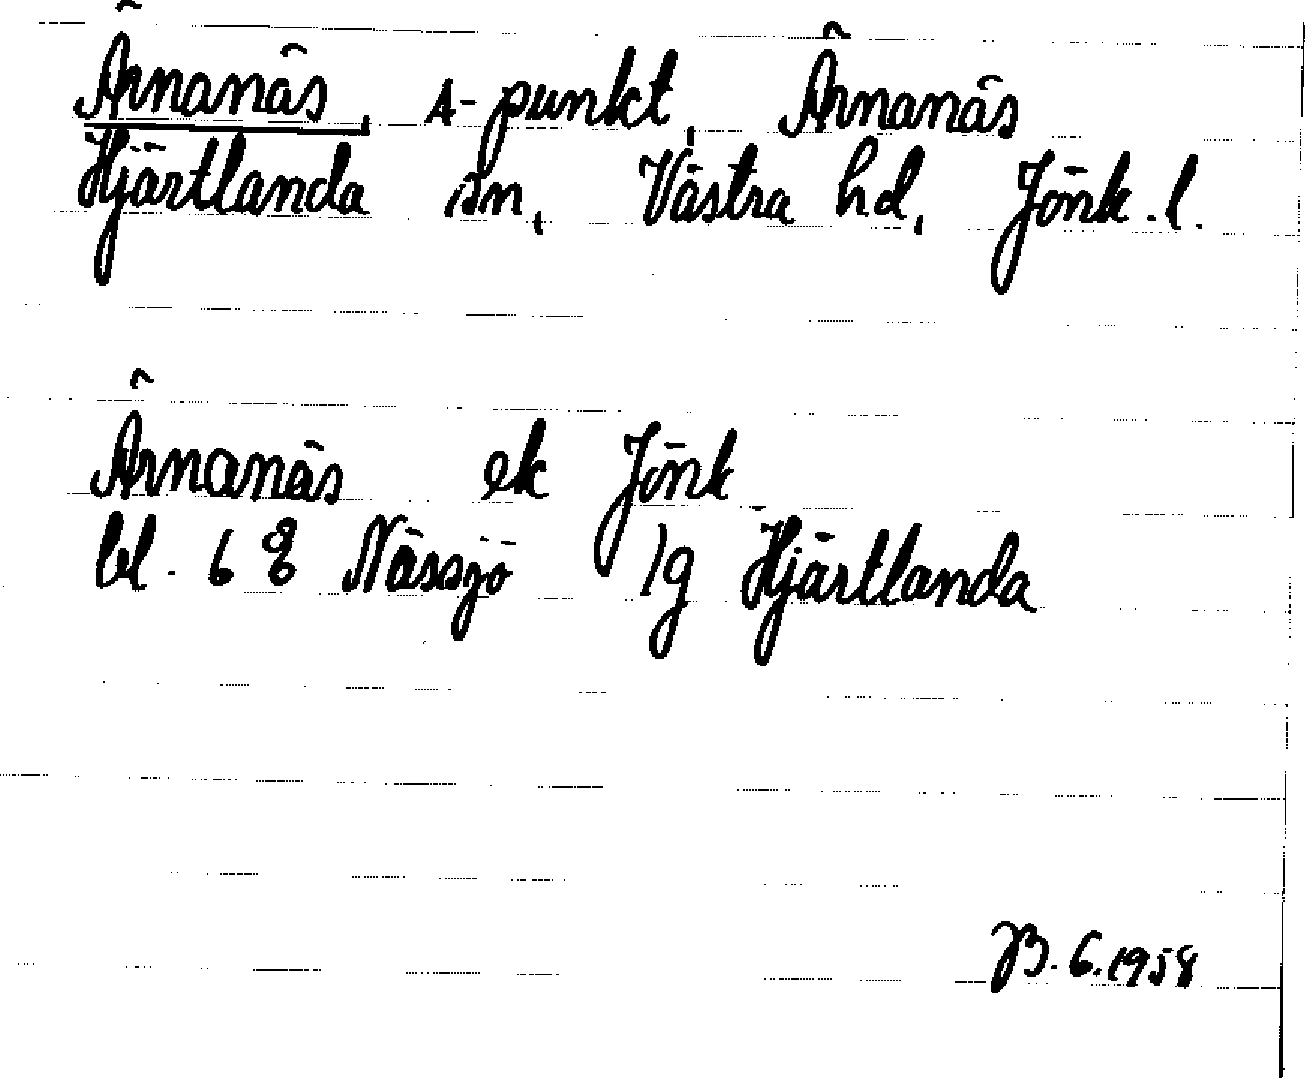 Ärnanäs, A-punkt, Ärnanäs
Hjärtlanda sn, Västra hd, Jönk.l.
Ärnanäs ek Jönk
bl. 6 E Nässjö 1g Hjärtlanda
B.G.1958